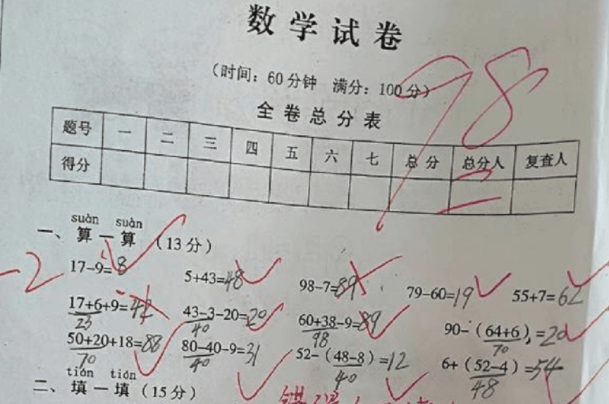 数学试卷
98
（时间：60分钟 满分：100分）
全卷总分表
题号 一 二 三 四 五 六 七 总分 总分人 复查人
得分
suàn suàn
一、算一算（13分）
-2
17-9=8 5+43=48 98-7=89 79-60=19 55+7=62
17+6+9=42 43-3-20=20 60+38-9=89 90-（64+6）=20
23 40 98 70
50+20+18=88 80-40-9=31 52-（48-8）=12 6+（52-4）=54
70 40 40 48
tián tián
二、填一填（15分）